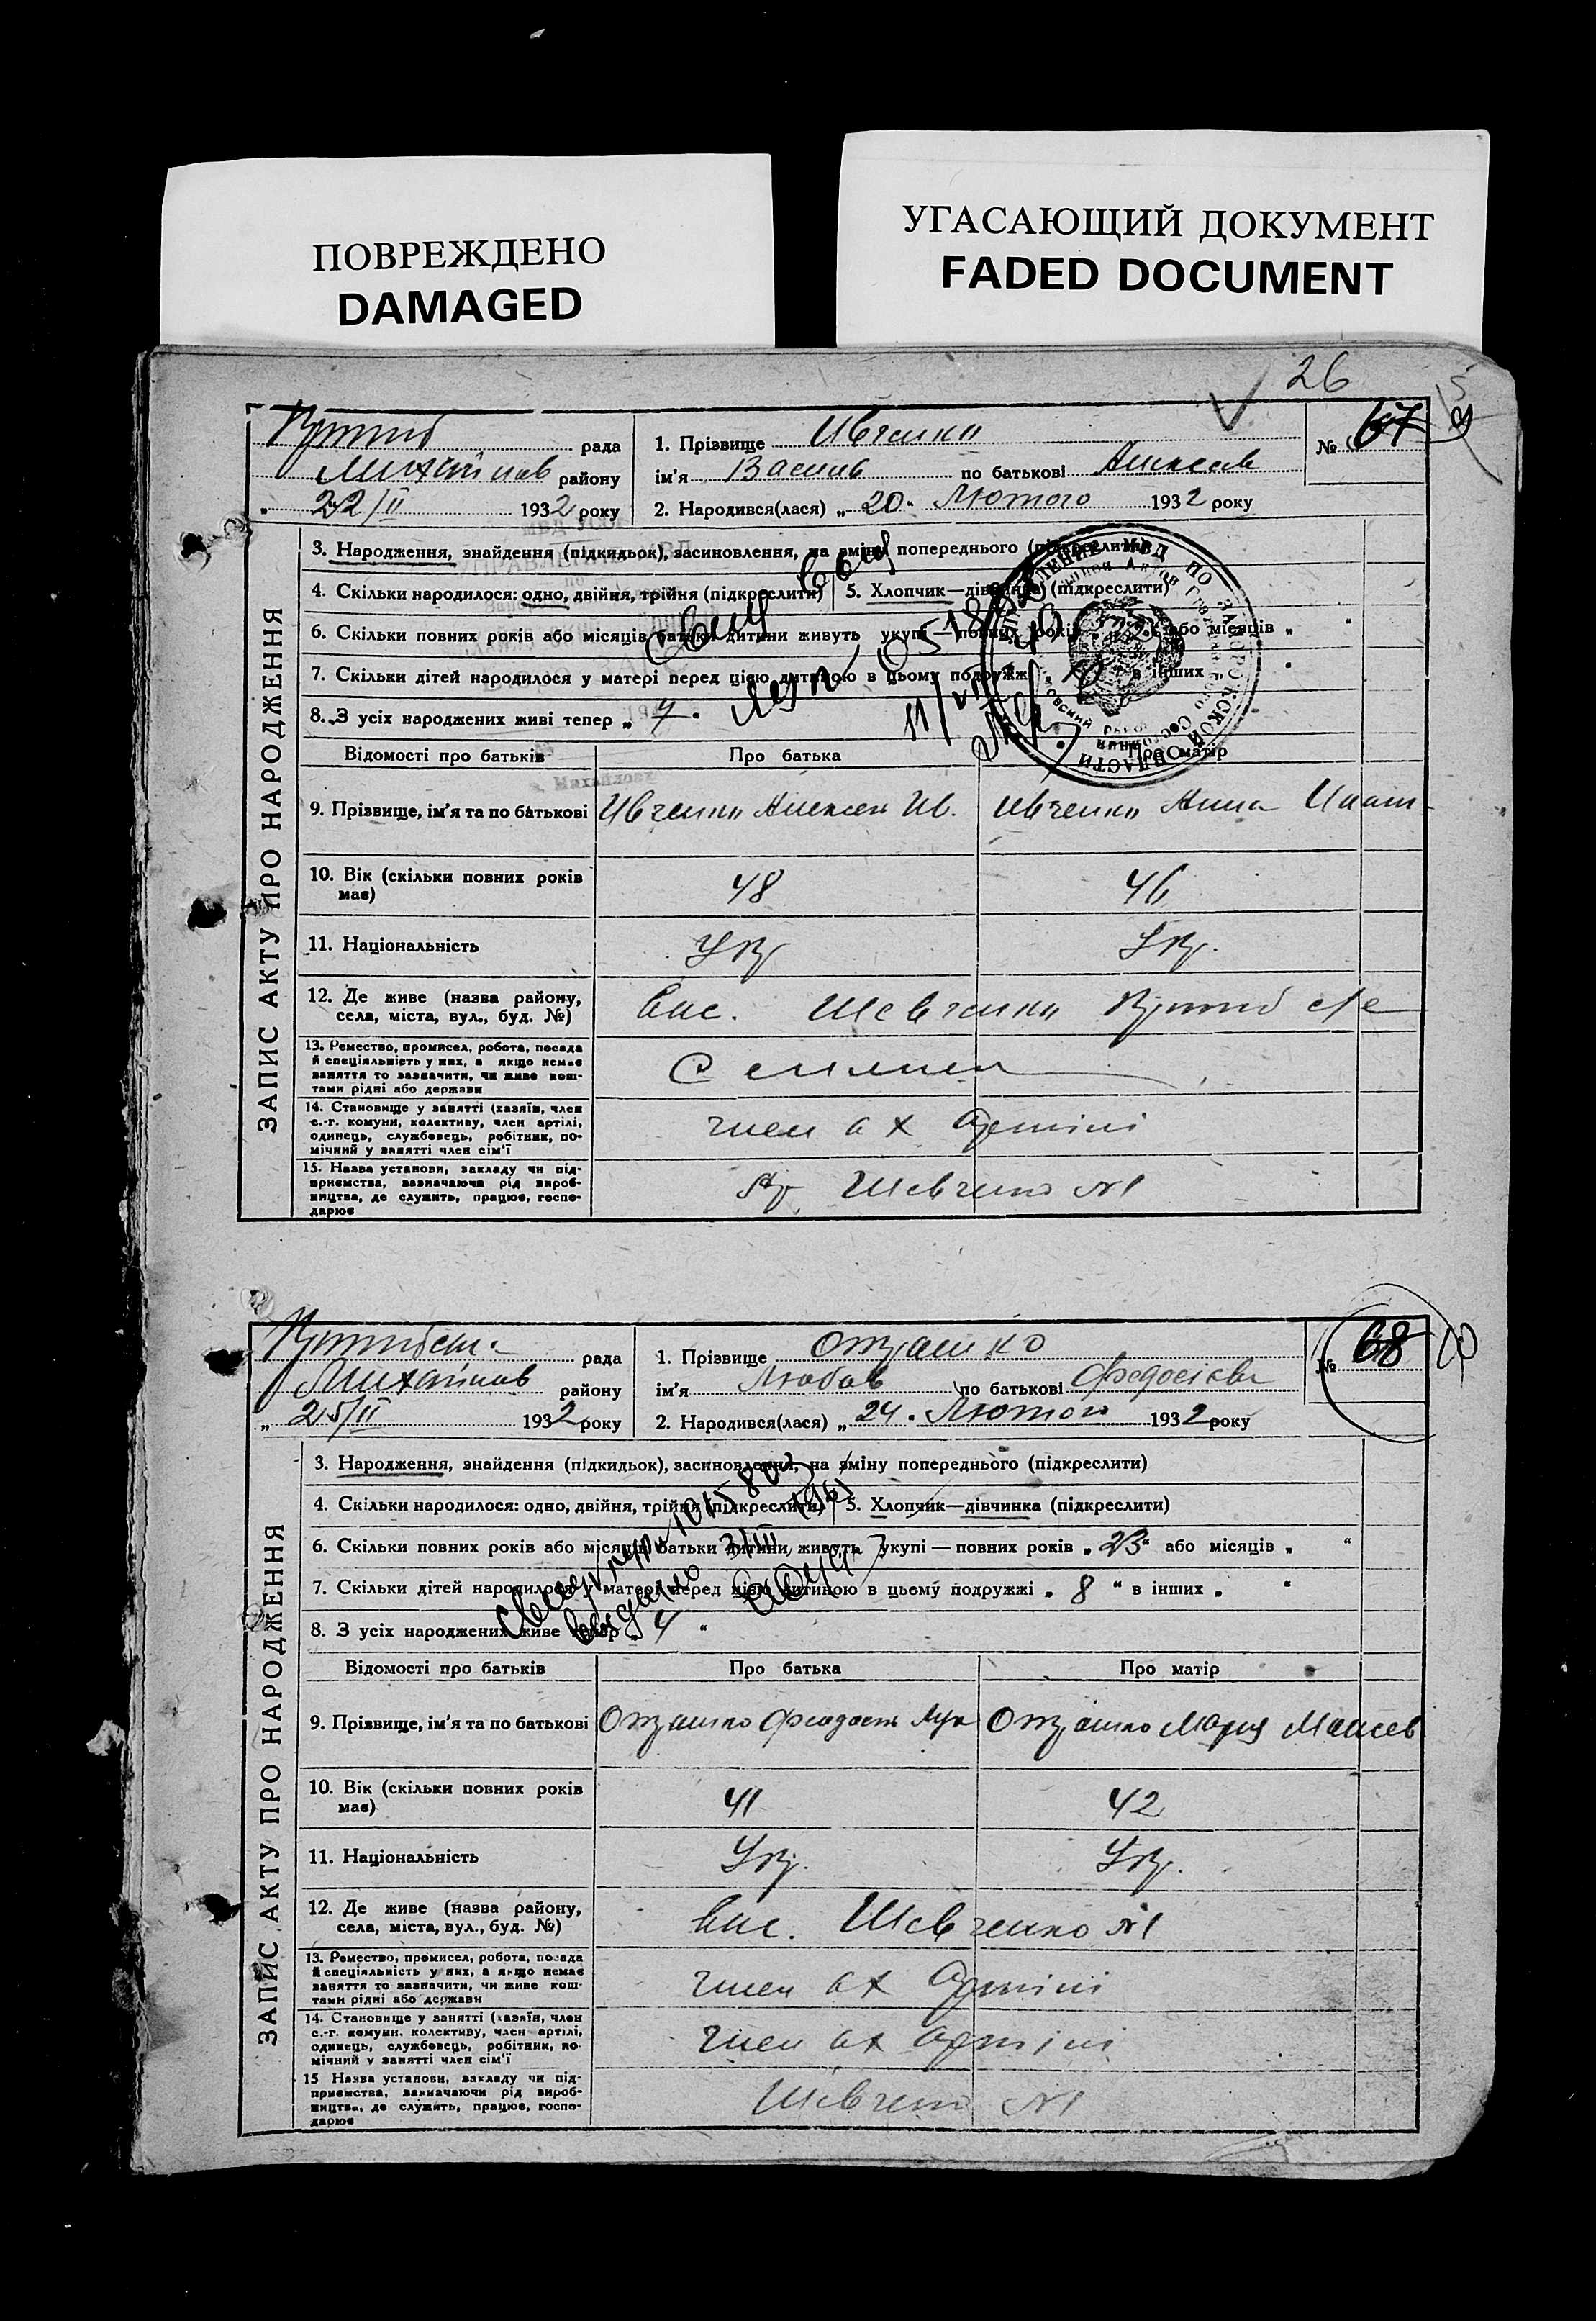 ПОВРЕЖДЕНО
DAMAGED
УГАСАЮЩИЙ ДОКУМЕНТ
FADED DOCUMENT
26
ЗАПИС АКТУ ПРО НАРОДЖЕННЯ
рада
Михайлов району
22/II 1932 року
1. Прізвище Ивченко
ім'я Васил по батькові Алексеев
2. Народився(лася) „ 20 " Лютого 1932 року
№ 67
3. Народження, знайдення (підкидьок), засиновлення, на зміну попереднього (підкреслити)
4. Скільки народилося: одно, двійня, трійня (підкреслити) 5. Хлопчик—дівчинка (підкреслити)
6. Скільки повних років або місяців батьки дитини живуть укупі — повних років або місяців „ "
7. Скільки дітей народилося у матері перед цією дитиною в цьому подружжі в інших „ "
8. З усіх народжених живі тепер „ 7 "
Відомості про батьків Про батька Про матір
9. Прізвище, ім'я та по батькові Ивченко Алексей Ив. Ивченко Анна Игнат
10. Вік (скільки повних років має) 48 46
11. Національність Укр Укр.
12. Де живе (назва району, села, міста, вул., буд. №) вис. Шевченко с/р
13. Ремество, промисел, робота, посада й спеціяльність у них, а якщо немає заняття то зазначити, чи живе коштами рідні або держави
14. Становище у занятті (хазяїн, член с.-г. комуни, колективу, член артілі, одинець, службовець, робітник, помічний у занятті член сім'ї член с х артілі
15. Назва установи, закладу чи підприємства, зазначаючи рід виробництва, де служить, працює, господарює Шевченко №1
ЗАПИС АКТУ ПРО НАРОДЖЕННЯ
рада
Михайлов району
„ 25/II 1932 року
1. Прізвище
ім'я Любов по батькові Федосієв
2. Народився(лася) „ 24 " Лютого 1932 року
№ 68 10
3. Народження, знайдення (підкидьок), засиновлення, на зміну попереднього (підкреслити)
4. Скільки народилося: одно, двійня, трійня (підкреслити) 5. Хлопчик—дівчинка (підкреслити)
6. Скільки повних років або місяців батьки дитини живуть укупі — повних років „ 23 " або місяців „ "
7. Скільки дітей народилося у матері перед цією дитиною в цьому подружжі „ 8 " в інших „ "
8. З усіх народжених живе тепер „ 4 "
Відомості про батьків Про батька Про матір
9. Прізвище, ім'я та по батькові Мария Моисеев
10. Вік (скільки повних років має) 41 42
11. Національність Укр. Укр.
12. Де живе (назва району, села, міста, вул., буд. №) вис. Шевченко №1
13. Ремество, промисел, робота, посада й спеціяльність у них, а якщо немає заняття то зазначити, чи живе коштами рідні або держави член с х артілі
14. Становище у занятті (хазяїн, член с.-г. комуни, колективу, член артілі, одинець, службовець, робітник, помічний у занятті член сім'ї член с х артілі
15 Назва установи, закладу чи підприємства, зазначаючи рід виробництва, де служить, працює, господарює Шевченко №1